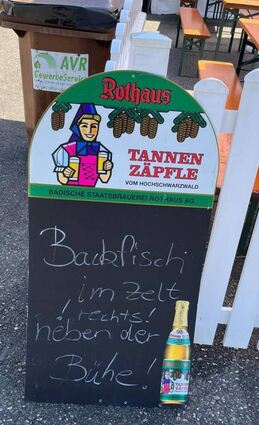 AVR
GewerbeService
Rothaus
TANNEN
ZÄPFLE
VOM HOCHSCHWARZWALD
BADISCHE STAATSBRAUEREI ROTHAUS AG
Backfisch
im Zelt
! rechts!
neben der
Bühe!
TANNEN
ZÄPFLE